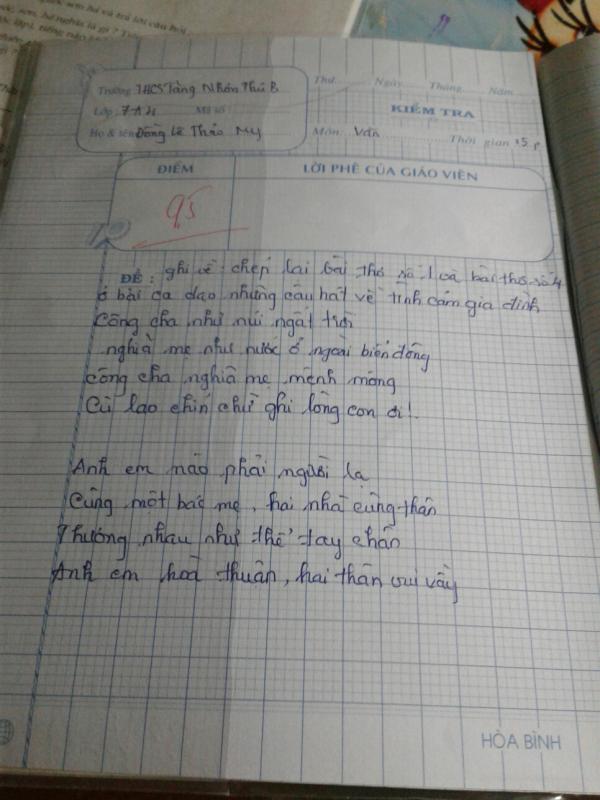 Trường THCS Tăng Nhơn Phú B
Lớp 7A4 Mã số
Họ & tên Đồng Lê Thảo My
Thứ Ngày Tháng Năm
KIỂM TRA
Môn Văn Thời gian 15 p
ĐIỂM
LỜI PHÊ CỦA GIÁO VIÊN
95
ĐỀ: ghi về chép lại bài thơ số 1 và bài thơ số 4
ở bài ca dao những câu hát về tình cảm gia đình
Công cha như núi ngất trời
nghĩa mẹ như nước ở ngoài biển đông
công cha nghĩa mẹ mênh mông
Cù lao chín chữ ghi lòng con ơi!
Anh em nào phải người lạ
Cùng một bác mẹ, hai nhà cùng thân
Thương nhau như thể tay chân
Anh em hoà thuận, hai thân vui vầy
HÒA BÌNH